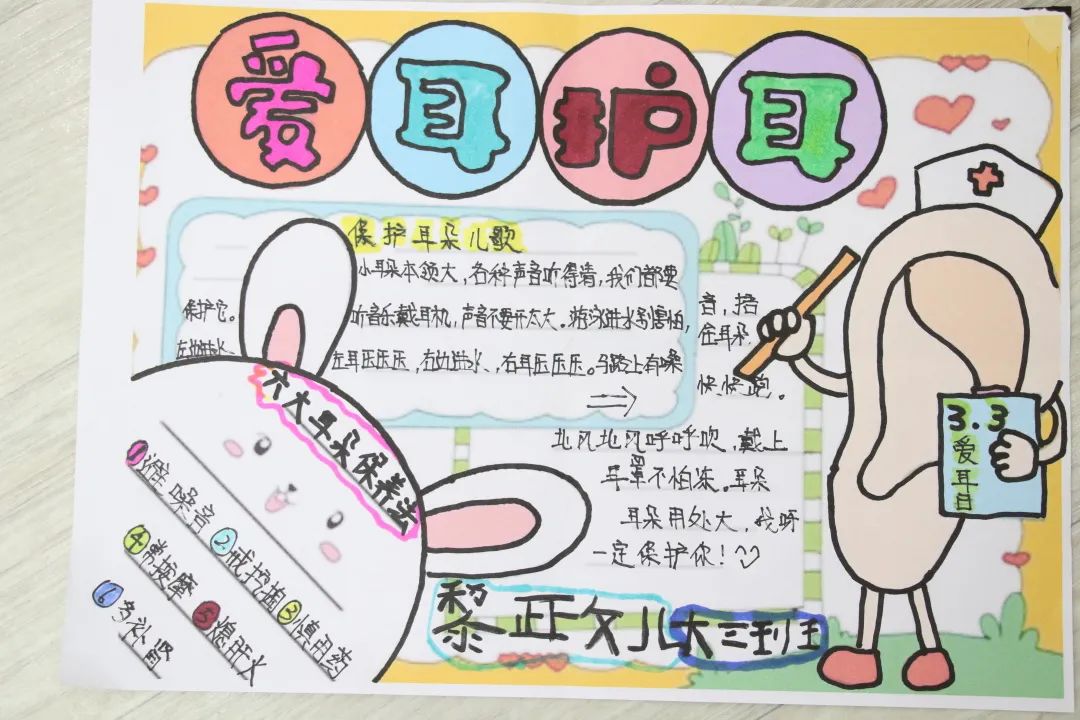 爱耳护耳
保护耳朵儿歌
小耳朵本领大,各种声音听得清,我们都要
保护它。
听音乐戴耳机,声音不要开太大。游泳进水别害怕,
左边进水、
左耳压压压,右边进水、右耳压压压。马路上有噪
音,捂住耳朵
快快跑。
北风北风呼呼吹,戴上
耳罩不怕冻。耳朵
耳朵用处大,我呀
一定保护你!
六大耳朵保养法
1 避噪音
2 戒挖掏
3 慎用药
4 常按摩
5 熄肝火
6 多补肾
3.3
爱耳日
黎正文儿大三班